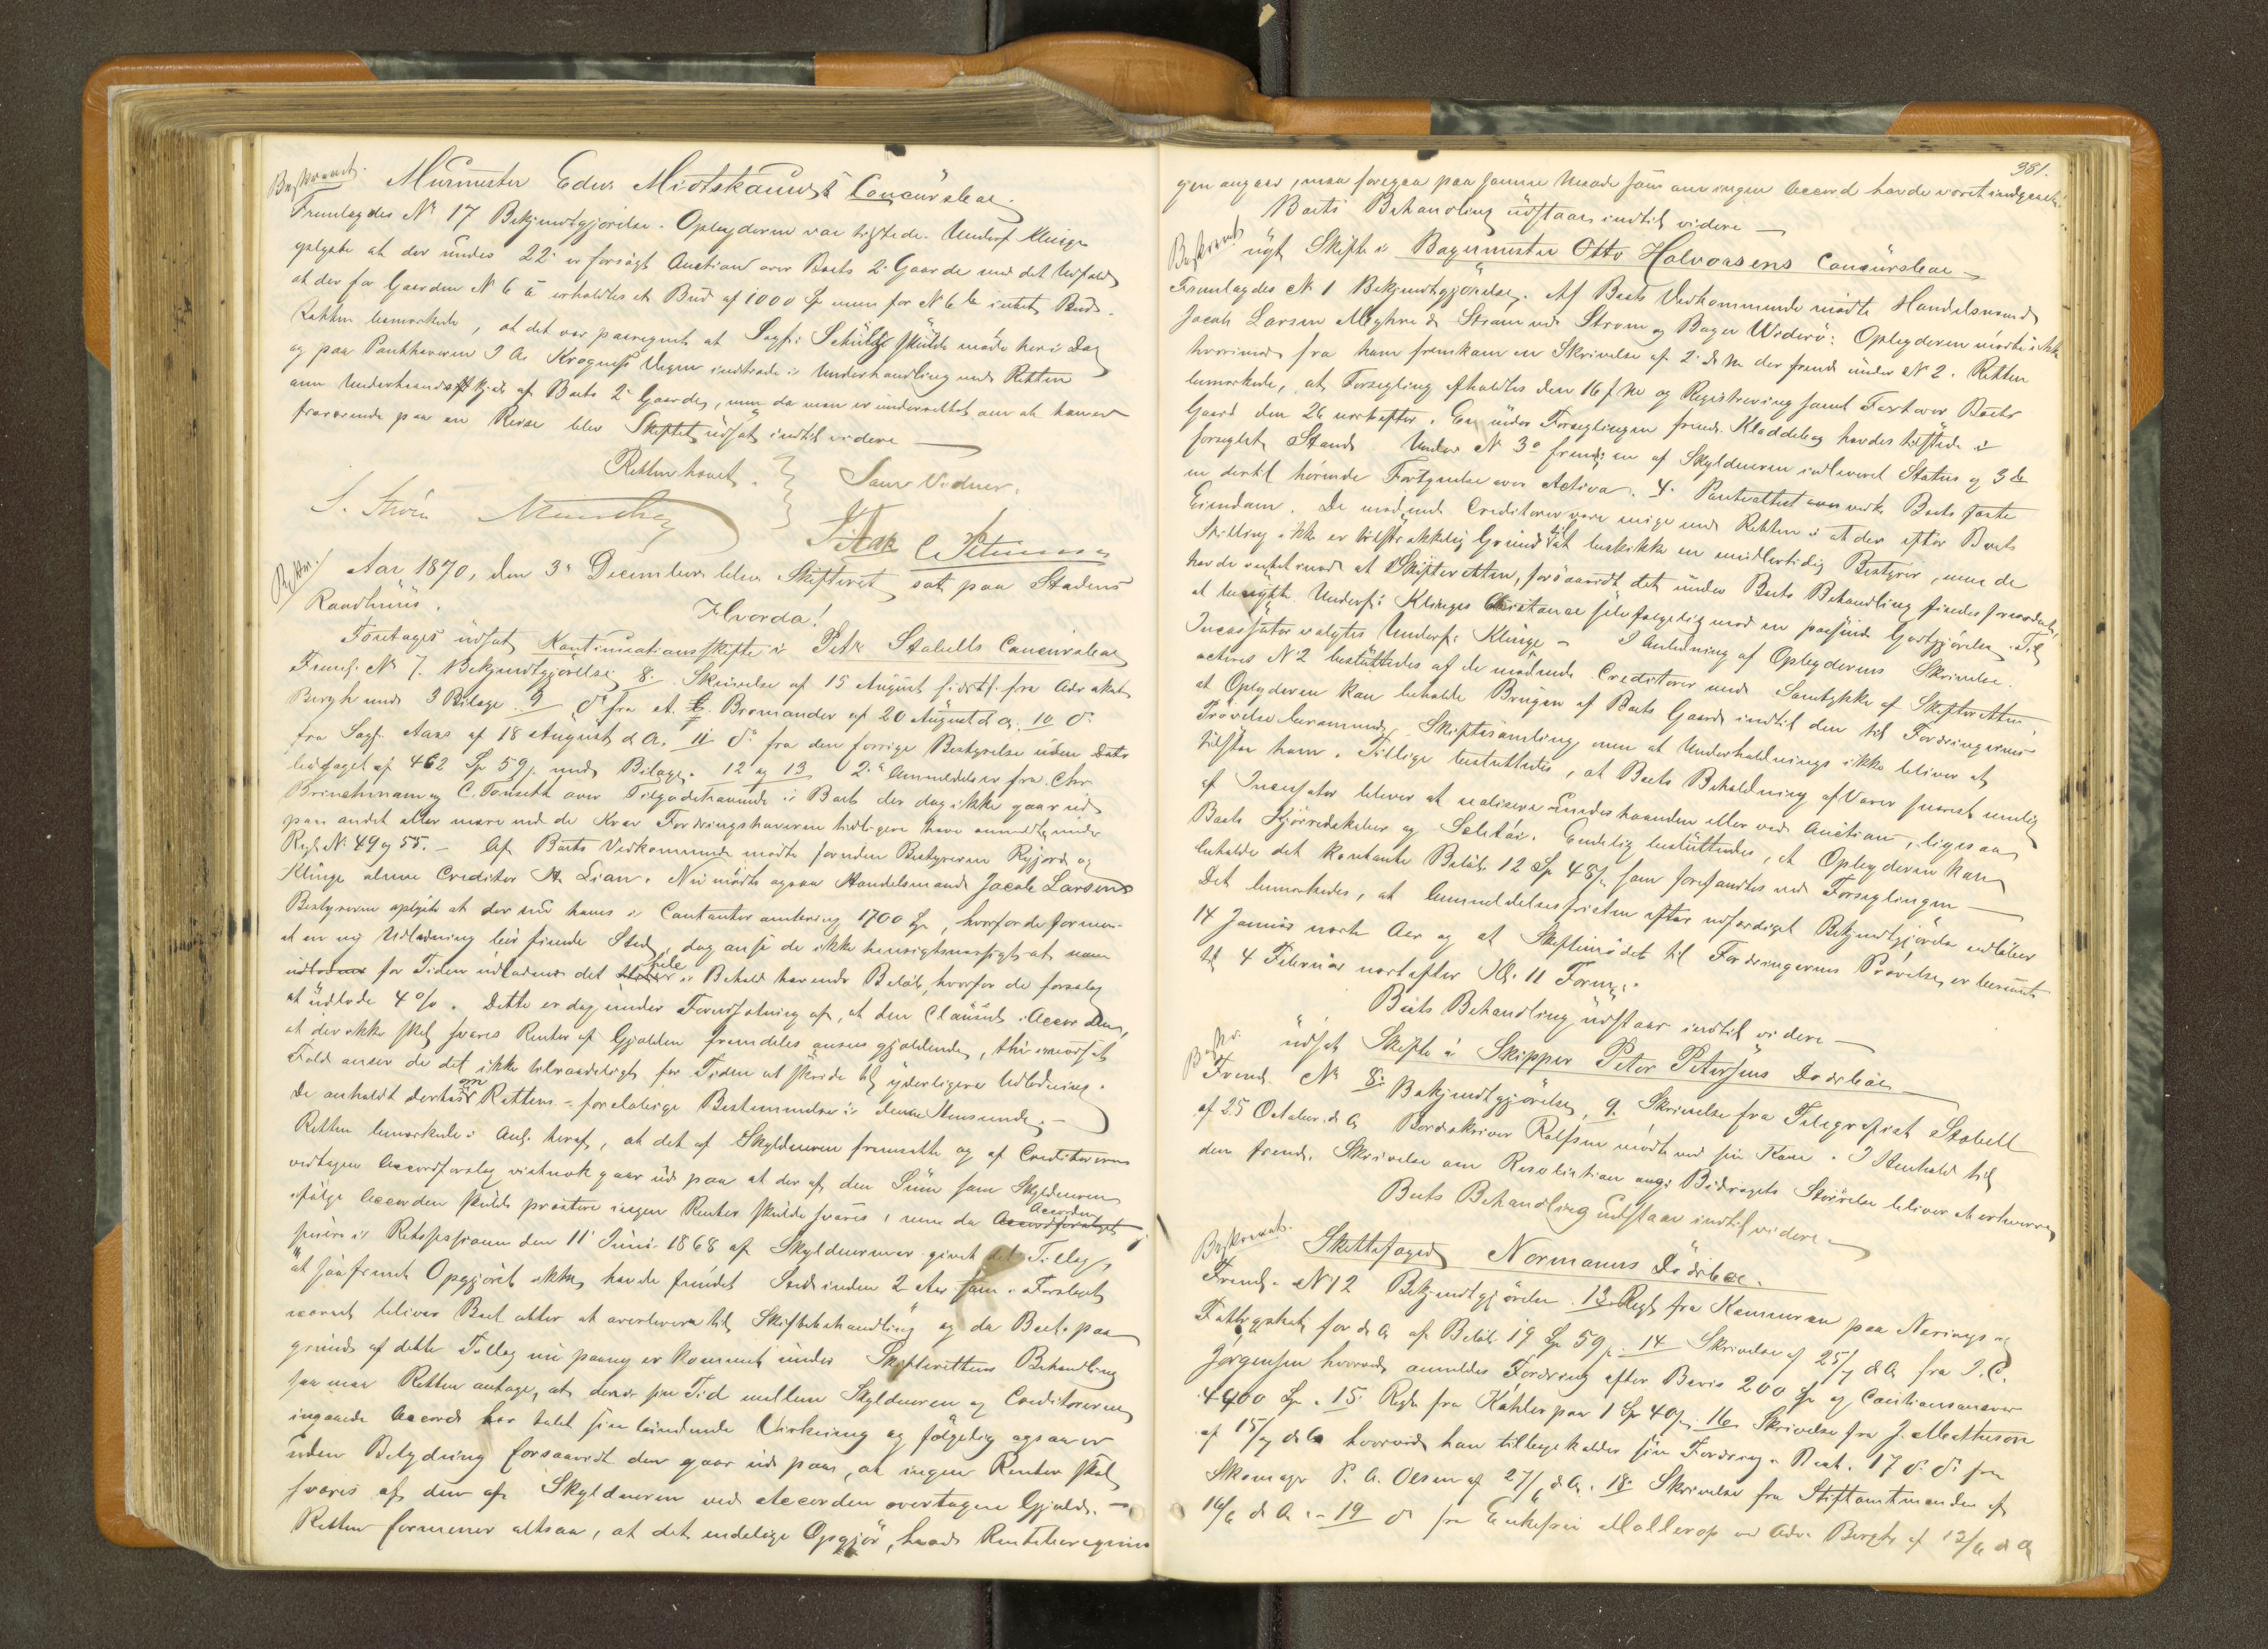 Beskrevet. Murmester Edw. Midtskauws Concursboe.
Fremlagdes No 17 Bekjendtgjørelse. Opbyderen var tilstede. Underf. Klinge
oplyste at der under 22de er forsøgt Auction over Boets 2de Gaarde med det Udfald
at der for Gaarden No 6 a erholdtes et Bud af 1000 Sp men for No 6 b intet Bud.
Retten bemærkede, at det var paaregnet at Sagf. Schultz skulde møde her i Dag
og paa Panthaveren I A. Krogness Vegne indtræde i Underhandling med Retten
om Underhaandskjøb af Boets 2de Gaarde, men da man er underrettet om at han er
fraværende paa en Reise blev Skiftet udsat indtil videre
Retten hævet. Som Vidner.
S. Støren
C. Petersen
Aar 1870, den 3de December blev Skifteret sat paa Stadens
Raadhuus.
Hvorda!
Foretages udsat Kontinuationsskifte i Petr. Stabells Concursboe
Freml. No 7. Bekjendtgjørelse 8. Skrivelse af 15 August sidstl. fra Advokat
Bergh med 3 Bilage. 9 do fra A. E. Bromander af 20 August d A. 10 do
fra Sagf. Aars af 18 August d A. 11 do fra den forrige Bestyrelse uden Dato
ledsaget af 462 Sp 59 s. med Bilage. 12 og 13 2de Anmeldelser fra Chr.
Brinchmann og C. Tønseth over Tilgodehavende i Boet der dog ikke gaar ud
paa andet eller mere end de Krav Fordringshaverne tidligere have anmeldt under
Regl. No 49 og 55. – Af Boets Vedkommende mødte foruden Bestyrerne Ryjord og
Klinge alene Creditor A. Lian. Nu mødte ogsaa Handelsmand Jacob Larsen
Bestyrerne oplyste at der nu haves i Contanter omkring 1700 Sp, hvorfor de formene
at en ny Udlodning bør finde Sted, dog anse de ikke hensigtsmæssigt at man
udlodnes for Tiden udlodnes det hele i Behold havende Beløb, hvorfor de foreslog
at udlode 4 %. Dette er dog under Forudsætning af, at den Clausul i Accorden,
at der ikke skal svares Renter af Gjælden fremdeles ansees gjældende, thi i modsat
Fald anser de det ikke tilraadeligt for Tiden at skride til yderligere Udlodning.
De anholdt derhos om Rettens foreløbige Bestemmelse i denne Henseende. –
Retten bemærkede i Anl. heraf, at det af Skyldneren fremsatte og af Creditorerne
vedtagne Accordforslag vistnok gaar ud paa at der af den Sum som Skyldneren
ifølge Accorden skulde præstere ingen Renter skulde svares, men da Accorden Accordforslaget
senere i Retssessionen den 11 Juni 1868 af Skyldneren er givet det Tillæg,
"at saafremt Opgjøret ikke havde fundet Sted inden 2 Aar som i Forslaget
nævnt bliver Boet atter at overlevere til Skiftebehandling" og da Boet paa
grund af dette Tillæg nu paany er kommet under Skifterettens Behandling
saa maa Retten antage, at den i sin Tid mellem Skyldneren og Creditorerne
ingaaede Accord har tabt sin bindende Virkning og følgelig ogsaa er
uden Betydning forsaavidt den gaar ud paa, at ingen Renter skal
svares af den af Skyldneren ved Accorden overtagne Gjæld. –
Retten formener altsaa, at det endelige Opgjør, hvad Renteberegnin
381.
gen angaar, maa foregaa paa samme Maade som om ingen Accord havde været indgaaet.
Boets Behandling udstaar indtil videre –
Beskrevet nyt Skifte i Bagermester Otto Halvorsens Concursboe –
Fremlagdes No 1 Bekjendtgjørelse. Af Boets Vedkommende mødte Handelsmænd
Jacob Larsen Strøm og Bager Widerø. Opbyderen mødte ikke
hvorimod fra ham fremkom en Skrivelse af 2 d M der freml. under No 2. Retten
bemærkede, at Forsegling afholdtes den 16 f M og Registrering samt Taxt over Boets
Gaard den 26 næstefter. En under Forseglingen freml. Kladdebog havdes tilstede i
forseglet Stand. Under No 3 a freml. en af Skyldneren indleveret Status og 3 b
en dertil hørende Fortegnelse over Activa. 4. Pantattest vedk. Boets faste
Eiendom. De mødende Creditorer vare enige med Retten i at der efter Boets
Stilling ikke er tilstrækkelig Grund til at beskikke en midlertidig Bestyrer, men de
havde intet imod at Skifteretten, forsaavidt det under Boets Behandling findes fornødent,
at benytte Underf. Klinges Assistance selvfølgelig mod en passende Godtgjørelse. Til
Incassator valgtes Underf. Klinge – I Anledning af Opbyderens Skrivelse
No 2 besluttedes af de mødende Creditorer med Samtykke af Skifteretten,
at Opbyderen kan beholde Brugen af Boets Gaard indtil den til Fordringernes
Prøvelse berammede Skiftesamling, men at Underholdnings ikke bliver at
tilstaa ham. Tillige besluttedes, at Boets Beholdning af Varer snarest mulig
af Incassator bliver at realisere underhaanden eller ved Auction, ligesaa
Boets Kjøreredskaber og Seletøi. Endelig besluttedes, at Opbyderen kan
beholde det kontante Beløb 12 Sp 48 s, som forefandtes ved Forseglingen –
Det bemærkedes, at Anmeldelsesfristen efter udfærdiget Bekjendtgjørelse udløber
14 Januar næste Aar og at Skiftemødet til Fordringernes Prøvelse, er berammet
til 4 Februar næstefter Kl. 11 Form.
Boets Behandling udstaar indtil videre –
udsat Skifte i Skipper Peter Petersens Dødsboe
Freml. No 8. Bekjendtgjørelse, 9. Skrivelse fra Telegrafist Stabell
af 25 October d A Bordskriver Rolfsen mødte med sin Kone. I Henhold til
den freml. Skrivelse om Resolution ang. Bidragets Størrelse bliver at erhverve
Boets Behandling udstaar indtil videre –
Beskrevet. Skattefoged Normanns Dødsboe.
Freml. No 12 Bekjendtgjørelse. 13. Regl. fra Kemneren paa Nærings og
Fattigskat for d A af Beløb 19 Sp 59 s. 14 Skrivelse af 25/7 d A fra I. C.
Jørgensen hvorved anmeldes Fordring efter Bevis 200 Sp og Cautionsansvar
4400 Sp. 15 Regl. fra Kahler paa 1 Sp 40 s. 16 Skrivelse fra J. Mathesen
af 15/7 d A hvorved han tilbagekalder sin Fordring i Boet. 17 do do fra
Skomager P. A. Olsen af 27/6 d A. 18 Skrivelse fra Stiftamtmanden af
16/6 d A. – 19 do fra Enkefru Møllerop ved Adv. Bergh af 13/6 d A